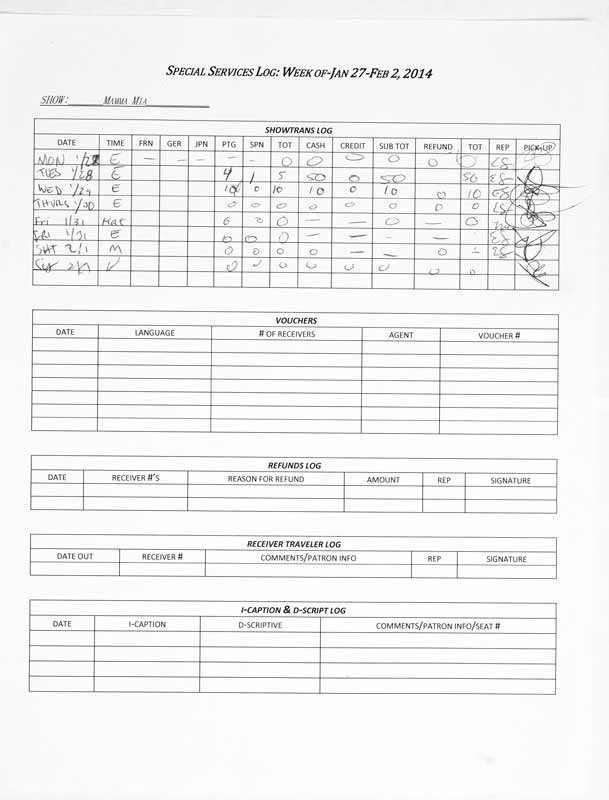 SPECIAL SERVICES LOG: WEEK OF-JAN 27-FEB 2, 2014
SHOW: MAMMA MIA
SHOWTRANS LOG
DATE TIME FRN GER JPN PTG SPN TOT CASH CREDIT SUB TOT REFUND TOT REP PICK-UP
MON 1/27 E — — — — — 0 0 0 0 0 0 ES
TUES 1/28 E 4 1 5 50 0 50 50 ES
WED 1/29 E 10 0 10 10 0 10 0 10 ES
THURS 1/30 E 0 0 0 0 0 0 0 0 ES
Fri 1/31 Mat 0 0 0 — — 0 — 0
FRI 1/31 E 0 0 0 — — — — ES
SAT 2/1 M 0 0 0 0 — — 0 ES
0 0 0 0 0 0 0 0
VOUCHERS
DATE LANGUAGE # OF RECEIVERS AGENT VOUCHER #
REFUNDS LOG
DATE RECEIVER #'S REASON FOR REFUND AMOUNT REP SIGNATURE
RECEIVER TRAVELER LOG
DATE OUT RECEIVER # COMMENTS/PATRON INFO REP SIGNATURE
I-CAPTION & D-SCRIPT LOG
DATE I-CAPTION D-SCRIPTIVE COMMENTS/PATRON INFO/SEAT #